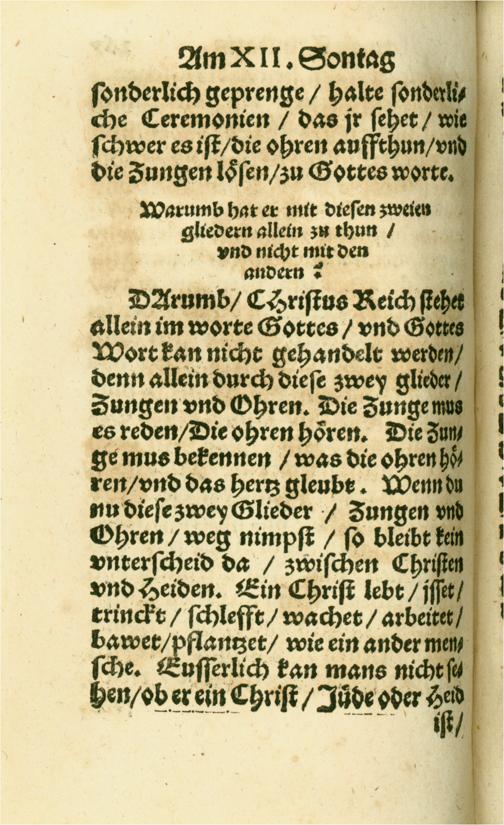 Am XII. Sontag
sonderlich geprenge / halte sonderli⸗
che Ceremonien / das jr sehet / wie
schwer es ist / die ohren auffthun / vnd
die Zungen lösen / zu Gottes worte.
Warumb hat er mit diesen zweien
gliedern allein zu thun /
vnd nicht mit den
andern ?
DArumb / CHristus Reich stehet
allein im worte Gottes / vnd Gottes
Wort kan nicht gehandelt werden /
denn allein durch diese zwey glieder /
Zungen vnd Ohren. Die Zunge mus
es reden / Die ohren hören. Die Zun⸗
ge mus bekennen / was die ohren hö⸗
ren / vnd das hertz gleubt. Wenn du
nu diese zwey Glieder / Zungen vnd
Ohren / weg nimpst / so bleibt kein
vnterscheid da / zwischen Christen
vnd Heiden. Ein Christ lebt / jsset /
trinckt / schlefft / wachet / arbeitet /
bawet / pflantzet / wie ein ander men⸗
sche. Eusserlich kan mans nicht se⸗
hen / ob er ein Christ / Jüde oder Heid
ist /